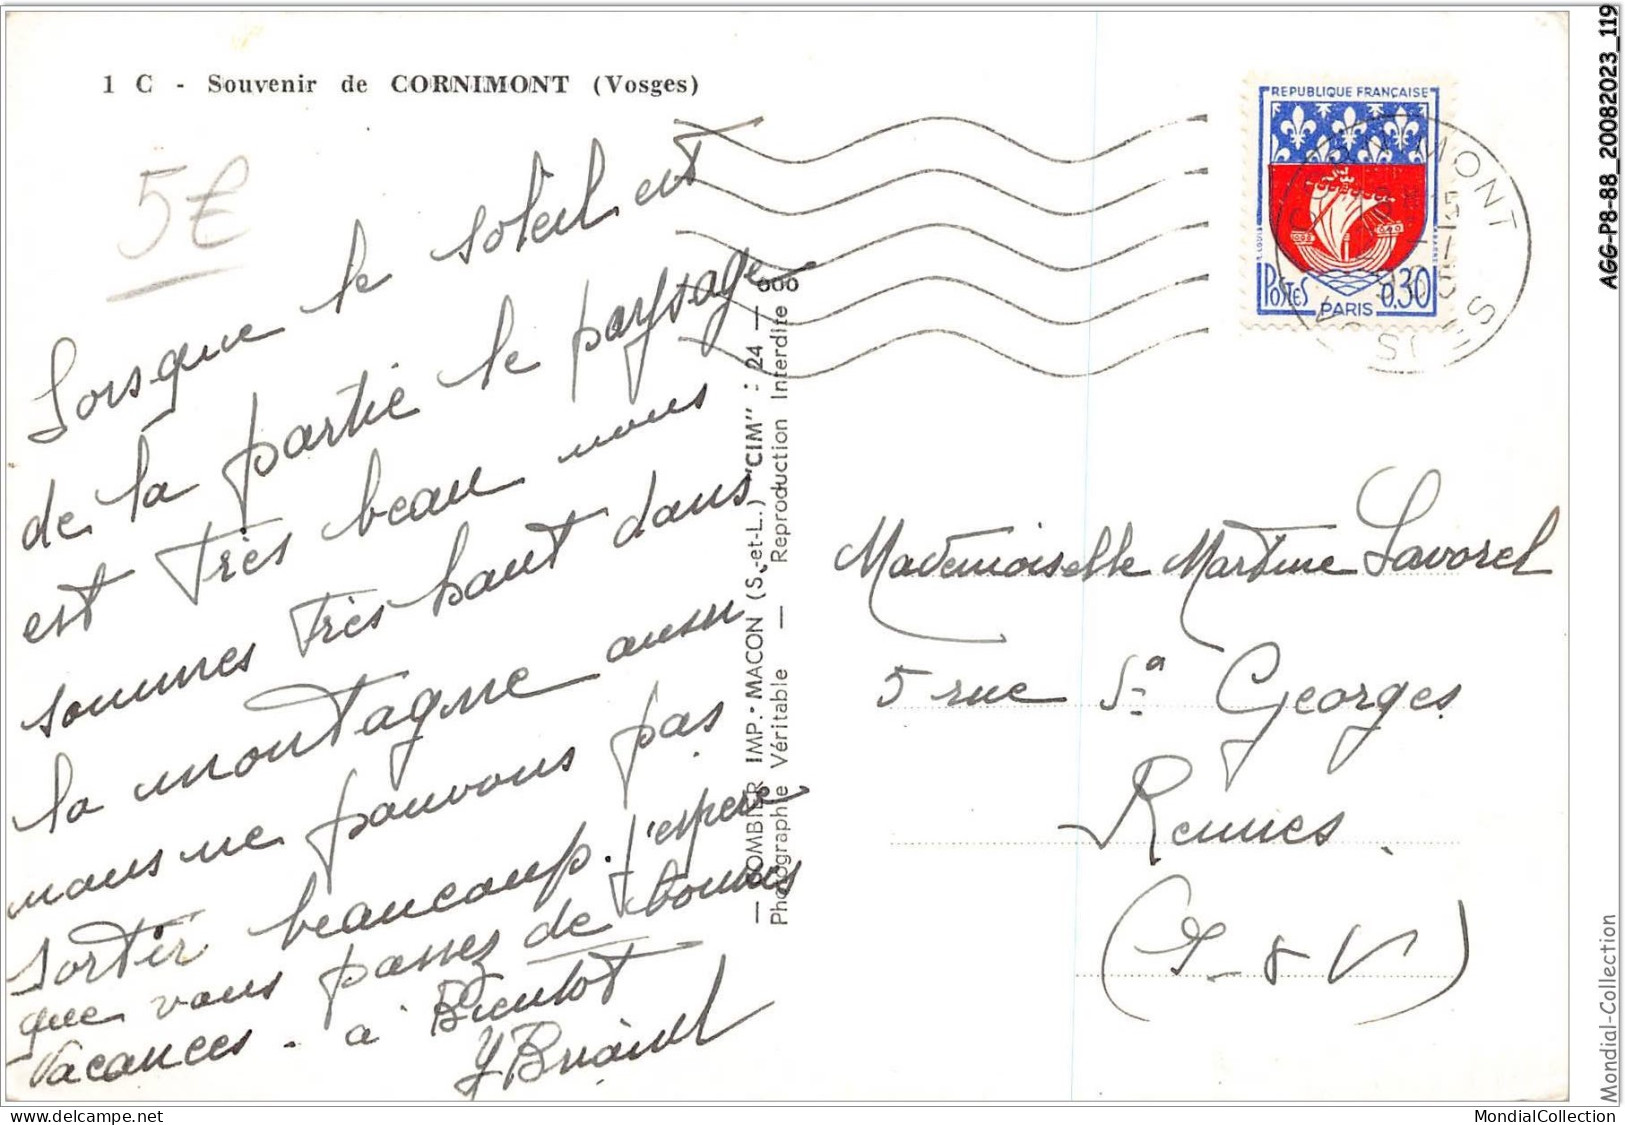 1 C - Souvenir de CORNIMONT (Vosges)
5€
Lorsque le soleil est
de la partie le paysage
est très beau nous
sommes très haut dans
la montagne aussi
nous ne pouvons pas
sortir beaucoup. j'espère
que vous passez de bonnes
vacances. à Bientot
COMBIER IMP. - MACON (S.-et-L.) "CIM" : 24 — 600
Photographie Véritable — Reproduction Interdite
REPUBLIQUE FRANÇAISE
POSTES 0,30
PARIS
CORNIMONT
VOSGES
Mademoiselle Martine Lavorel
5 rue St Georges
Rennes.
(I & V)
AGG-P8-88_20082023_119
Mondial-Collection
MondialCollection